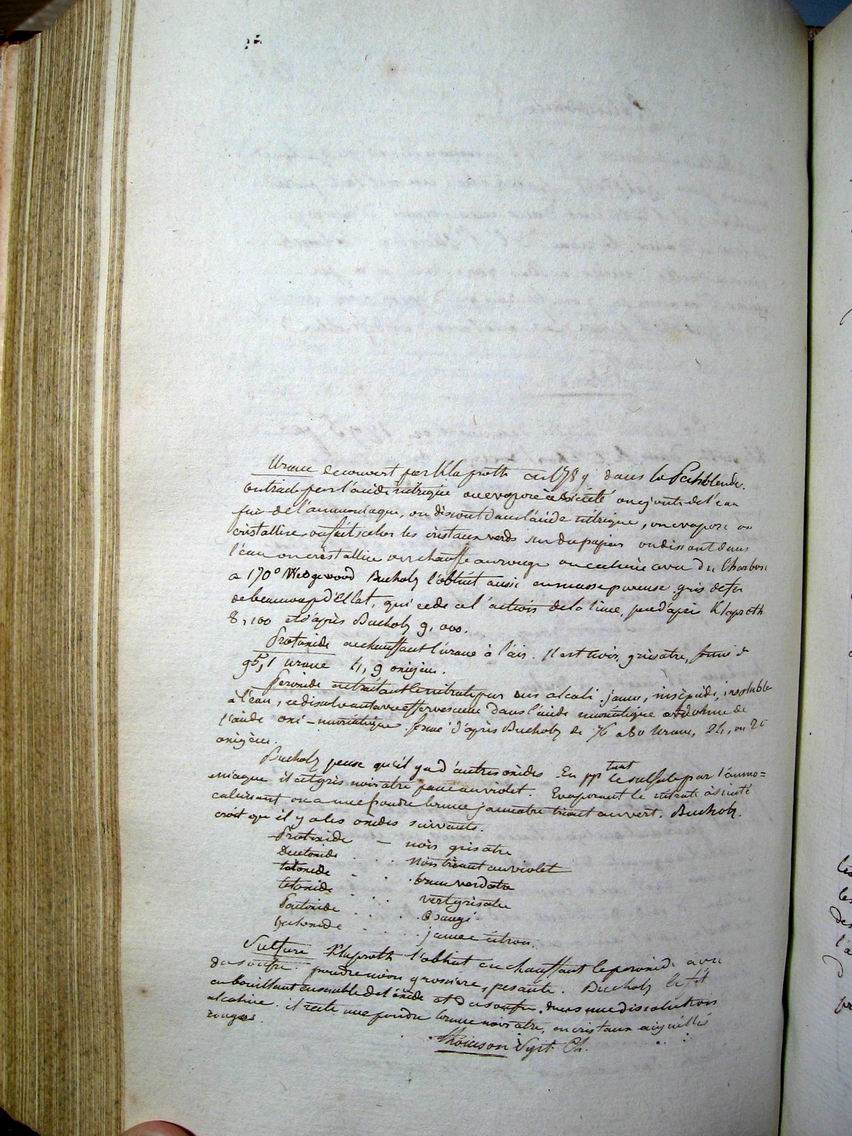 Urane decouvert par Klaproth en 1789 dans la Pechblende.
on traite par l'acide nitrique on evapore à siccité on ajoute de l'eau
puis de l'ammoniaque, on dissout dans l'acide nitrique, on evapore on
cristallise on fait secher les cristaux verds sur du papier on dissout dans
l'eau on cristallise on chauffe au rouge on calcine avec du Charbon
a 170° Wedgewood Bucholz l'obtint aussi en masse poreuse gris de fer
de beaucoup d'Eclat, qui cede a l'action de la lime, pesd. d'après Klaproth
8,100 et d'après Bucholz 9,000.
Protoxide en chauffant l'urane à l'air. Il est noir, grisatre, formé de
95,1 urane 4,9 oxigène.
Peroxide en traitant le nitrate par un alcali. jaune, insipide, insoluble
à l'eau, se dissolvant avec effervescence dans l'acide muriatique et donne de
l'acide oxi-muriatique. formé d'après Bucholz de 76 a 80 urane, 24, ou 20
oxigène.
Bucholz pense qu'il y a d'autres oxides. En pptant le sulfate par l'ammo=
niaque il est gris noiratre foncé au violet. Evaporant le nitrate à siccité
calcinant on a une poudre brune jaunatre tirant au vert. Bucholz.
croit qu'il y a les oxides suivants.
Protoxide - noir grisatre
Deutoxide . . . noir tirant au violet
tritoxide . . . brun verdatre
tetoxide . . . vert grisatre
. . . orangé
. . . jaune citron.
Sulfure Klaproth l'obtint en chauffant le peroxide avec
du soufre. poudre noire grossiere, pesante. Bucholz le fit
en bouillant ensemble de l'oxide et du soufre, dans une dissolution
alcaline. il reste une poudre brune noiratre, en cristaux aiguillés
rouges.
Thomson Syst. Ch.